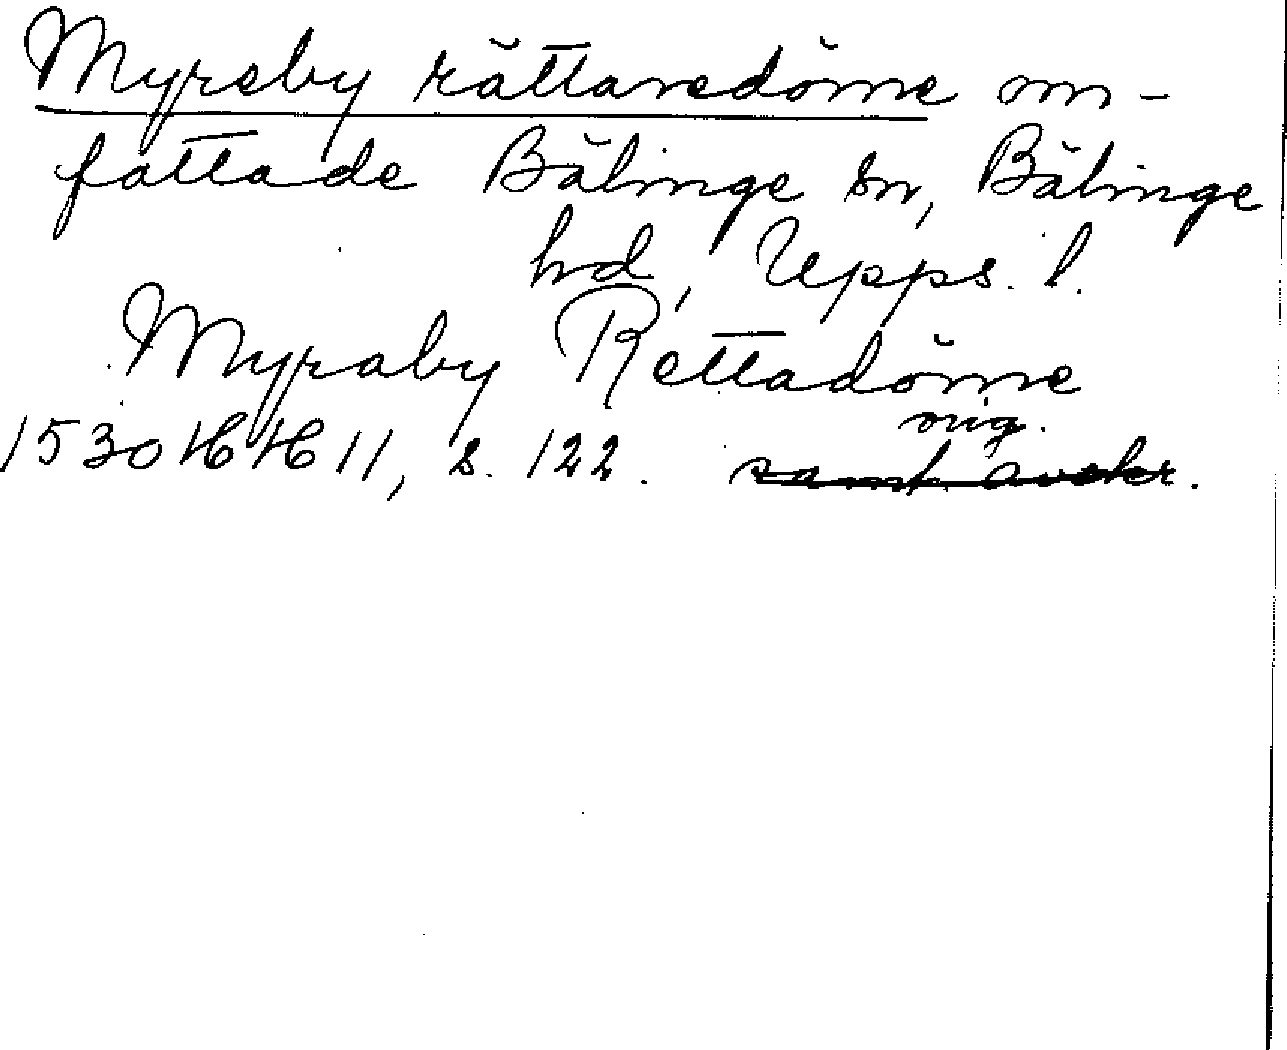 Myreby rättaredöme om-
fattade Bälinge sn, Bälinge
hd, Upps. l.
Myraby Rettadöme
orig.
1530 HH 11, s. 122. samt. avskr.